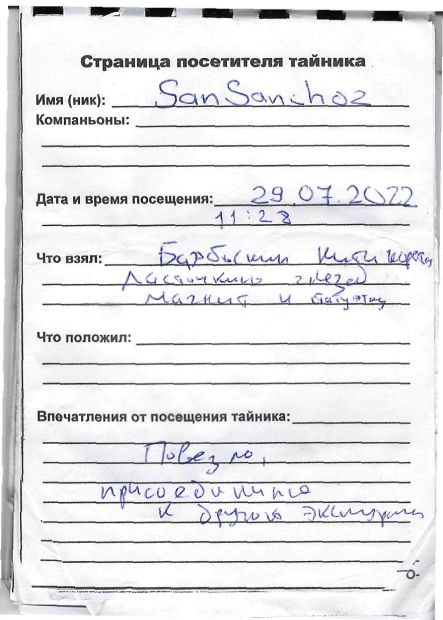 Страница посетителя тайника
Имя (ник): SanSanchoz
Компаньоны:
Дата и время посещения: 29.07.2022
11:28
Что взял:
Ласточкино гнездо
магнит и
Что положил:
Впечатления от посещения тайника:
Повезло,
присоединился
к другой экскурсии